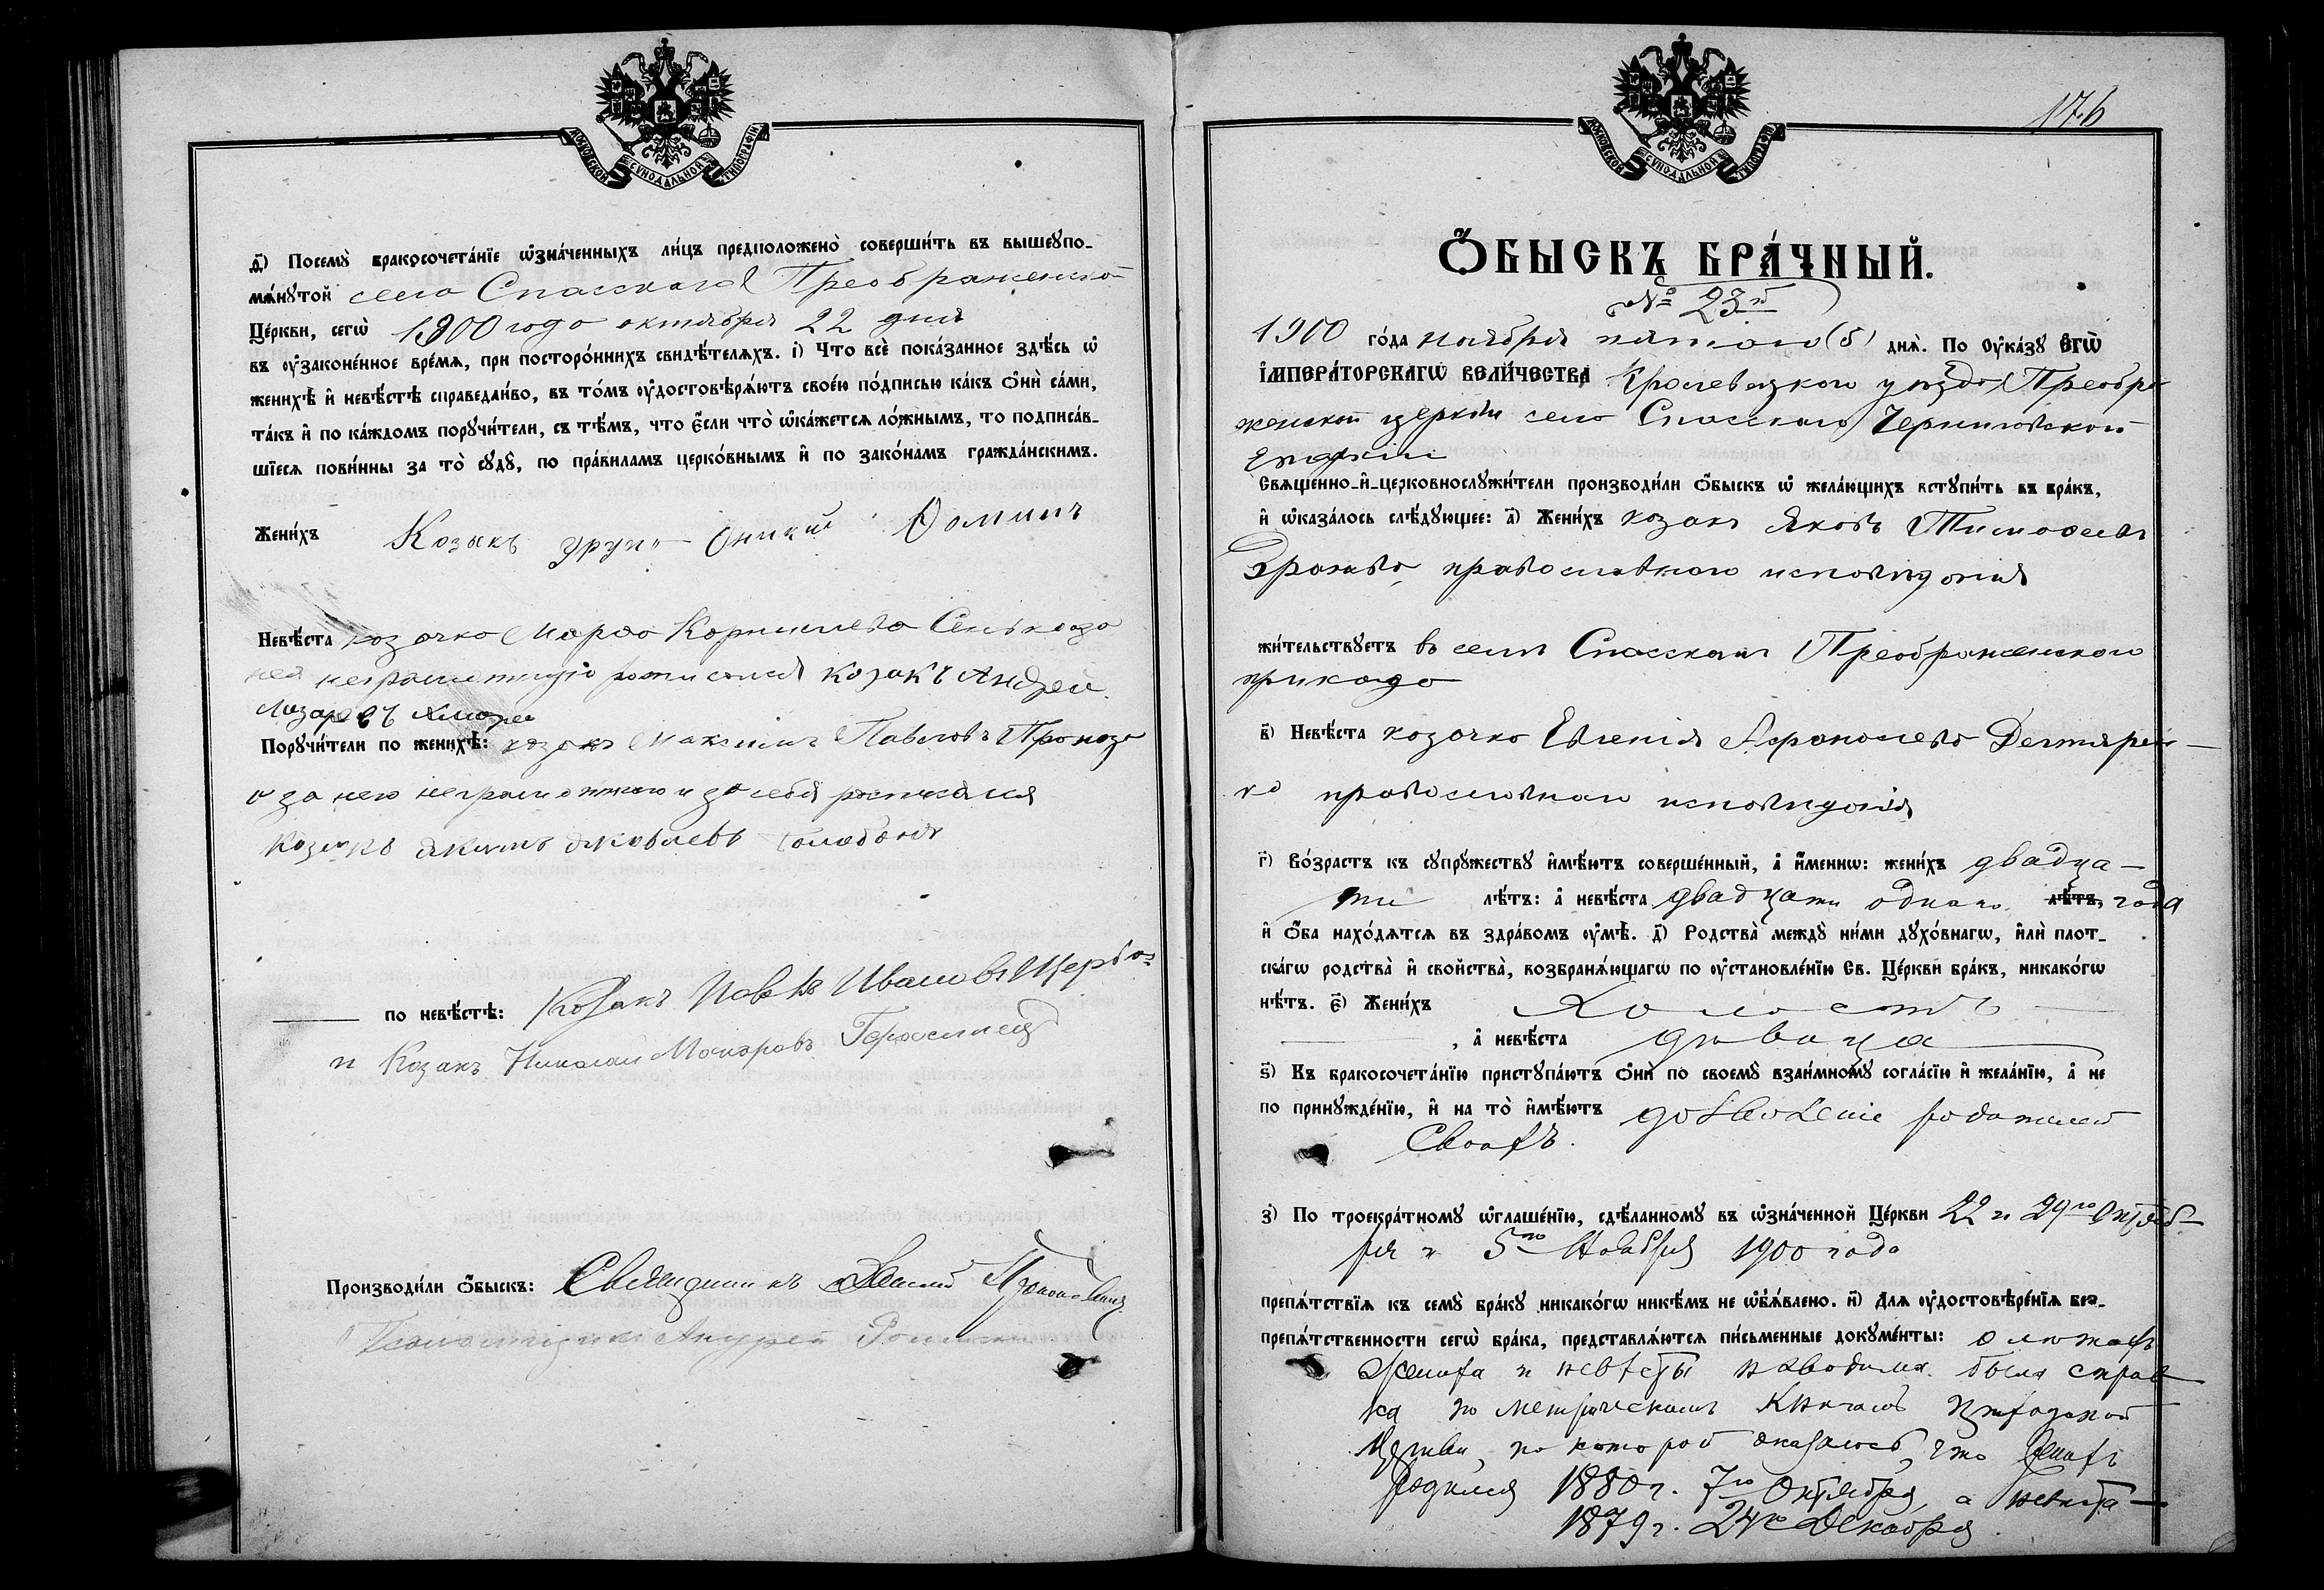 МОСКОВСКОЙ СѴНОДАЛЬНОЙ ТИПОГРАФІИ
д҃) Посемꙋ̀ бракосочета́нїе ѡ҆зна́ченныхъ ли́цъ предположено̀ соверши́ть въ вышеꙋпо-
мѧ́нꙋтой села Спасскаго Преображенской
Це́ркви, сегѡ̀ 1900 года октября 22 дня
въ ᲂу҆законе́нное вре́мѧ, при посторо́ннихъ свидѣ́телѧхъ. і҃) Что всѐ пока́занное здѣ́сь ѡ҆
женихѣ̀ и҆ невѣ́стѣ справедли́во, въ то́мъ ᲂу҆достовѣрѧ́ютъ свое́ю по́дписью ка́къ ѻ҆нѝ са́ми,
та́къ и҆ по ка́ждомъ порꙋчи́тели, съ тѣ́мъ, что є҆́сли что̀ ѡ҆ка́жетсѧ ло́жнымъ, то подписа́в-
шїесѧ пови́нны за то̀ сꙋдꙋ̀, по пра́виламъ церко́внымъ и҆ по зако́намъ гражда́нскимъ.
Жени́хъ Козакъ
Невѣ́ста козачка Марфа Корнилиева
неграмотную росписался козакъ Андрей
Лазаревъ
Порꙋчи́тели по женихѣ̀: козакъ Максимъ Павловъ
а за него неграмотнаго и за себя росписался
Козакъ Якимъ Яковлевъ
по невѣ́стѣ: Козакъ Ивановъ
и Козакъ Николай
Производи́ли ѻ҆́быскъ: Священникъ
Псаломщикъ Андрей
176
МОСКОВСКОЙ СѴНОДАЛЬНОЙ ТИПОГРАФІИ
Ѻ҆́БЫСКЪ БРА́ЧНЫЙ.
№ 23й
1900 го́да ноября пятого (5) днѧ̀. По ᲂу҆ка́зꙋ Є҆гѡ̀
І҆мпера́торскагѡ Вели́чества Кролевецкого уезда Преобра
женской церкви села Спасского Черниговской
Епархіи
Сващенно-и҆-церковнослꙋжи́тели производи́ли ѻ҆́быскъ ѡ҆ жела́ющихъ встꙋпи́ть въ бра́къ,
и҆ ѡ҆каза́лось слѣ́дꙋющее: а҃) Жени́хъ козакъ Яковъ Тимофеевъ
православного исповѣдонія
жи́тельствꙋетъ въ селѣ Спасскомъ Преображенского
прихода
в҃) Невѣ́ста козачка Евгенія Дегтярен-
ко православного исповѣдонія
г҃) Во́зрастъ къ сꙋпрꙋ́жествꙋ и҆мѣ́ютъ соверше́нный, а҆ и҆́меннѡ: жени́хъ двадца-
ти лѣ́тъ: а҆ невѣ́ста двадцати одного лѣ́тъ, года
и҆ ѻ҆́ба нахо́дѧтсѧ въ здра́вомъ ᲂу҆мѣ̀. д҃) Родства̀ междꙋ̀ ни́ми дꙋхо́внагѡ, и҆лѝ плот-
ска́гѡ родства̀ и҆ свойства̀, возбранѧ́ющагѡ по ᲂу҆становле́нїю Св. Це́ркви бра́къ, никако́гѡ
нѣ́тъ. є҃) Жени́хъ Холостъ
, а҆ невѣ́ста дѣвица
ѕ҃) Къ бракосочета́нїю пристꙋпа́ютъ ѻ҆нѝ по своемꙋ̀ взаи́мномꙋ согла́сїю и҆ жела́нїю, а҆ не
по принꙋжде́нїю, и҆ на то̀ и҆мѣ́ютъ дозволеніе родителей
своихъ.
з҃) По троекра́тномꙋ ѡ҆глаше́нїю, сдѣ́ланномꙋ въ ѡ҆зна́ченной Це́ркви 22 и 29го Октяб-
ря и 5го Ноября 1900 года
препѧ́тствїѧ къ семꙋ̀ бра́кꙋ никако́гѡ никѣ́мъ не ѡ҆бѧ́влено. и҃) Для ᲂу҆достовѣре́нїѧ без-
препѧ́тственности сегѡ̀ бра́ка, представлѧ́ютсѧ пи́сьменные докꙋме́нты: о летахъ
жениха и невѣсты наводима была справ-
ка по метрическимъ книгамъ приходской
церкви, по которой оказалось, что женихъ
родился 1880 г. 7го Октября, а невѣста -
1879 г. 24го Декабря.